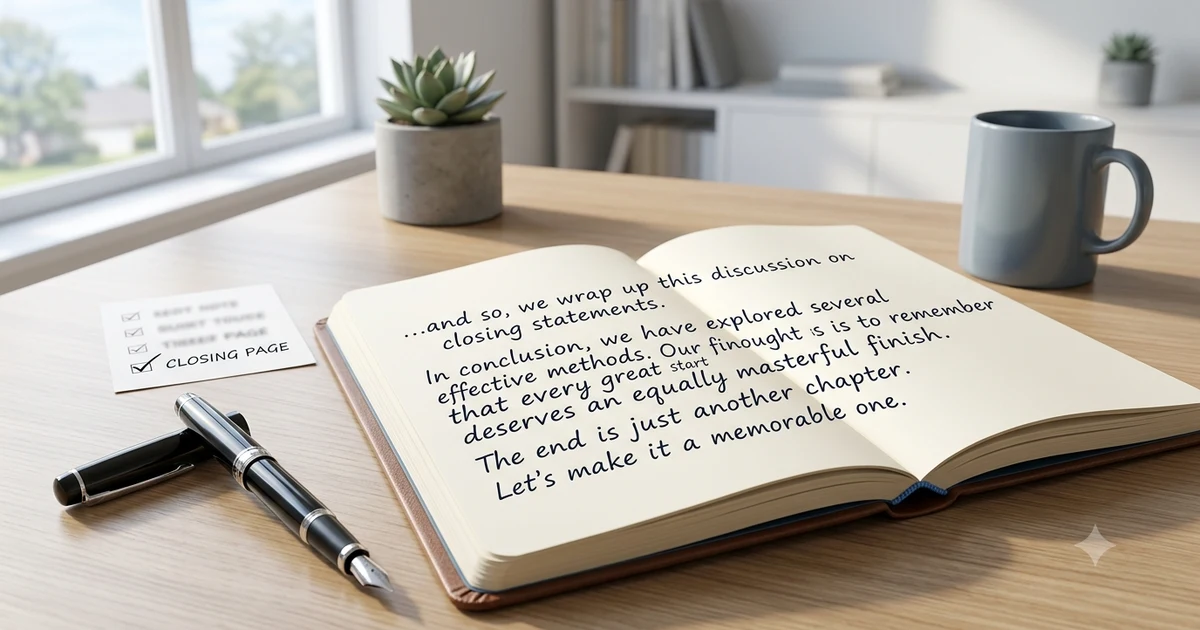 CLOSING PAGE
...and so, we wrap up this discussion on
closing statements.
In conclusion, we have explored several
effective methods. Our finought is is to remember
that every great start
deserves an equally masterful finish.
The end is just another chapter.
Let's make it a memorable one.